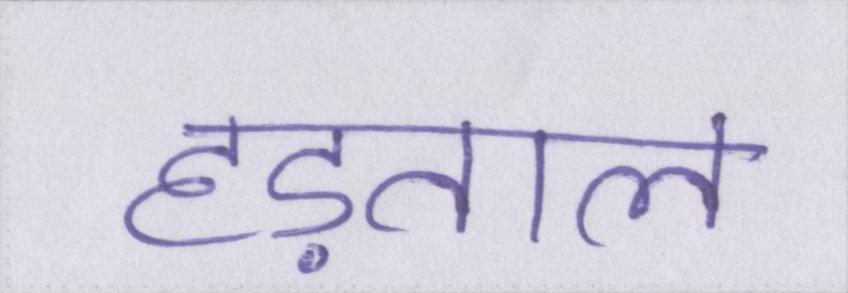 हड़ताल